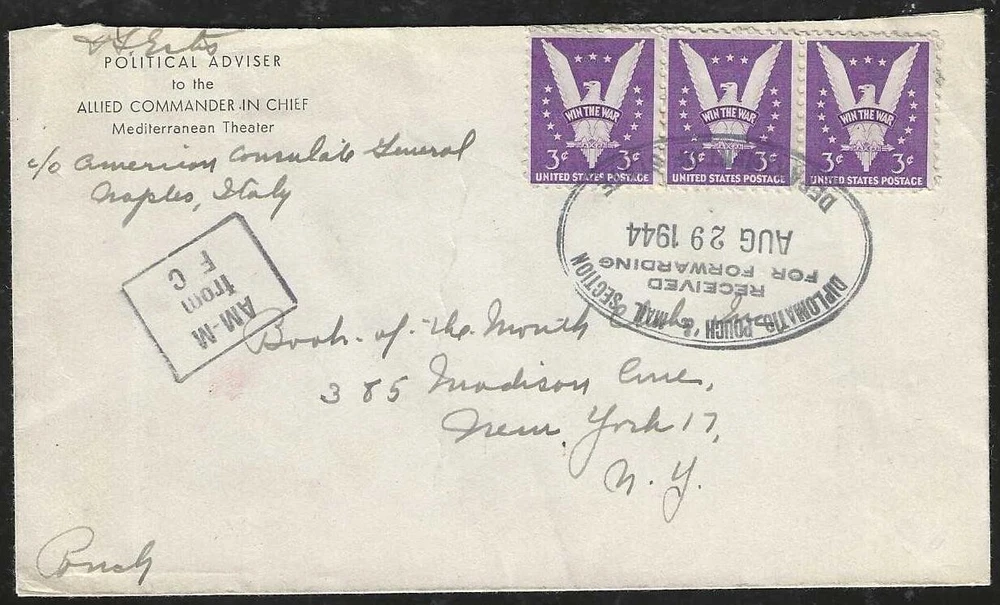 POLITICAL ADVISER
to the
ALLIED COMMANDER IN CHIEF
Mediterranean Theater
c/o American Consulate General
Naples, Italy
WIN THE WAR
3¢ 3¢
UNITED STATES POSTAGE
WIN THE WAR
3¢ 3¢
UNITED STATES POSTAGE
WIN THE WAR
3¢ 3¢
UNITED STATES POSTAGE
DIPLOMATIC POUCH & MAIL SECTION
RECEIVED
FOR FORWARDING
AUG 29 1944
AM-M
from
F C
Book-of-the-Month Club, Inc.
385 Madison Ave,
New York 17,
N. Y.
Pouch